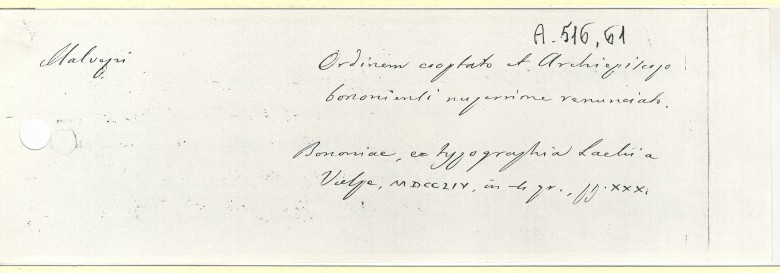 A. 516, 61
Malvezzi
Ordinem cooptato et Archiepiscopo
bononiensi nuperrime renunciato.
Bononiae, ex typographia Laelii a
Vulpe, MDCCLIV, in-4 gr., ff. XXX.